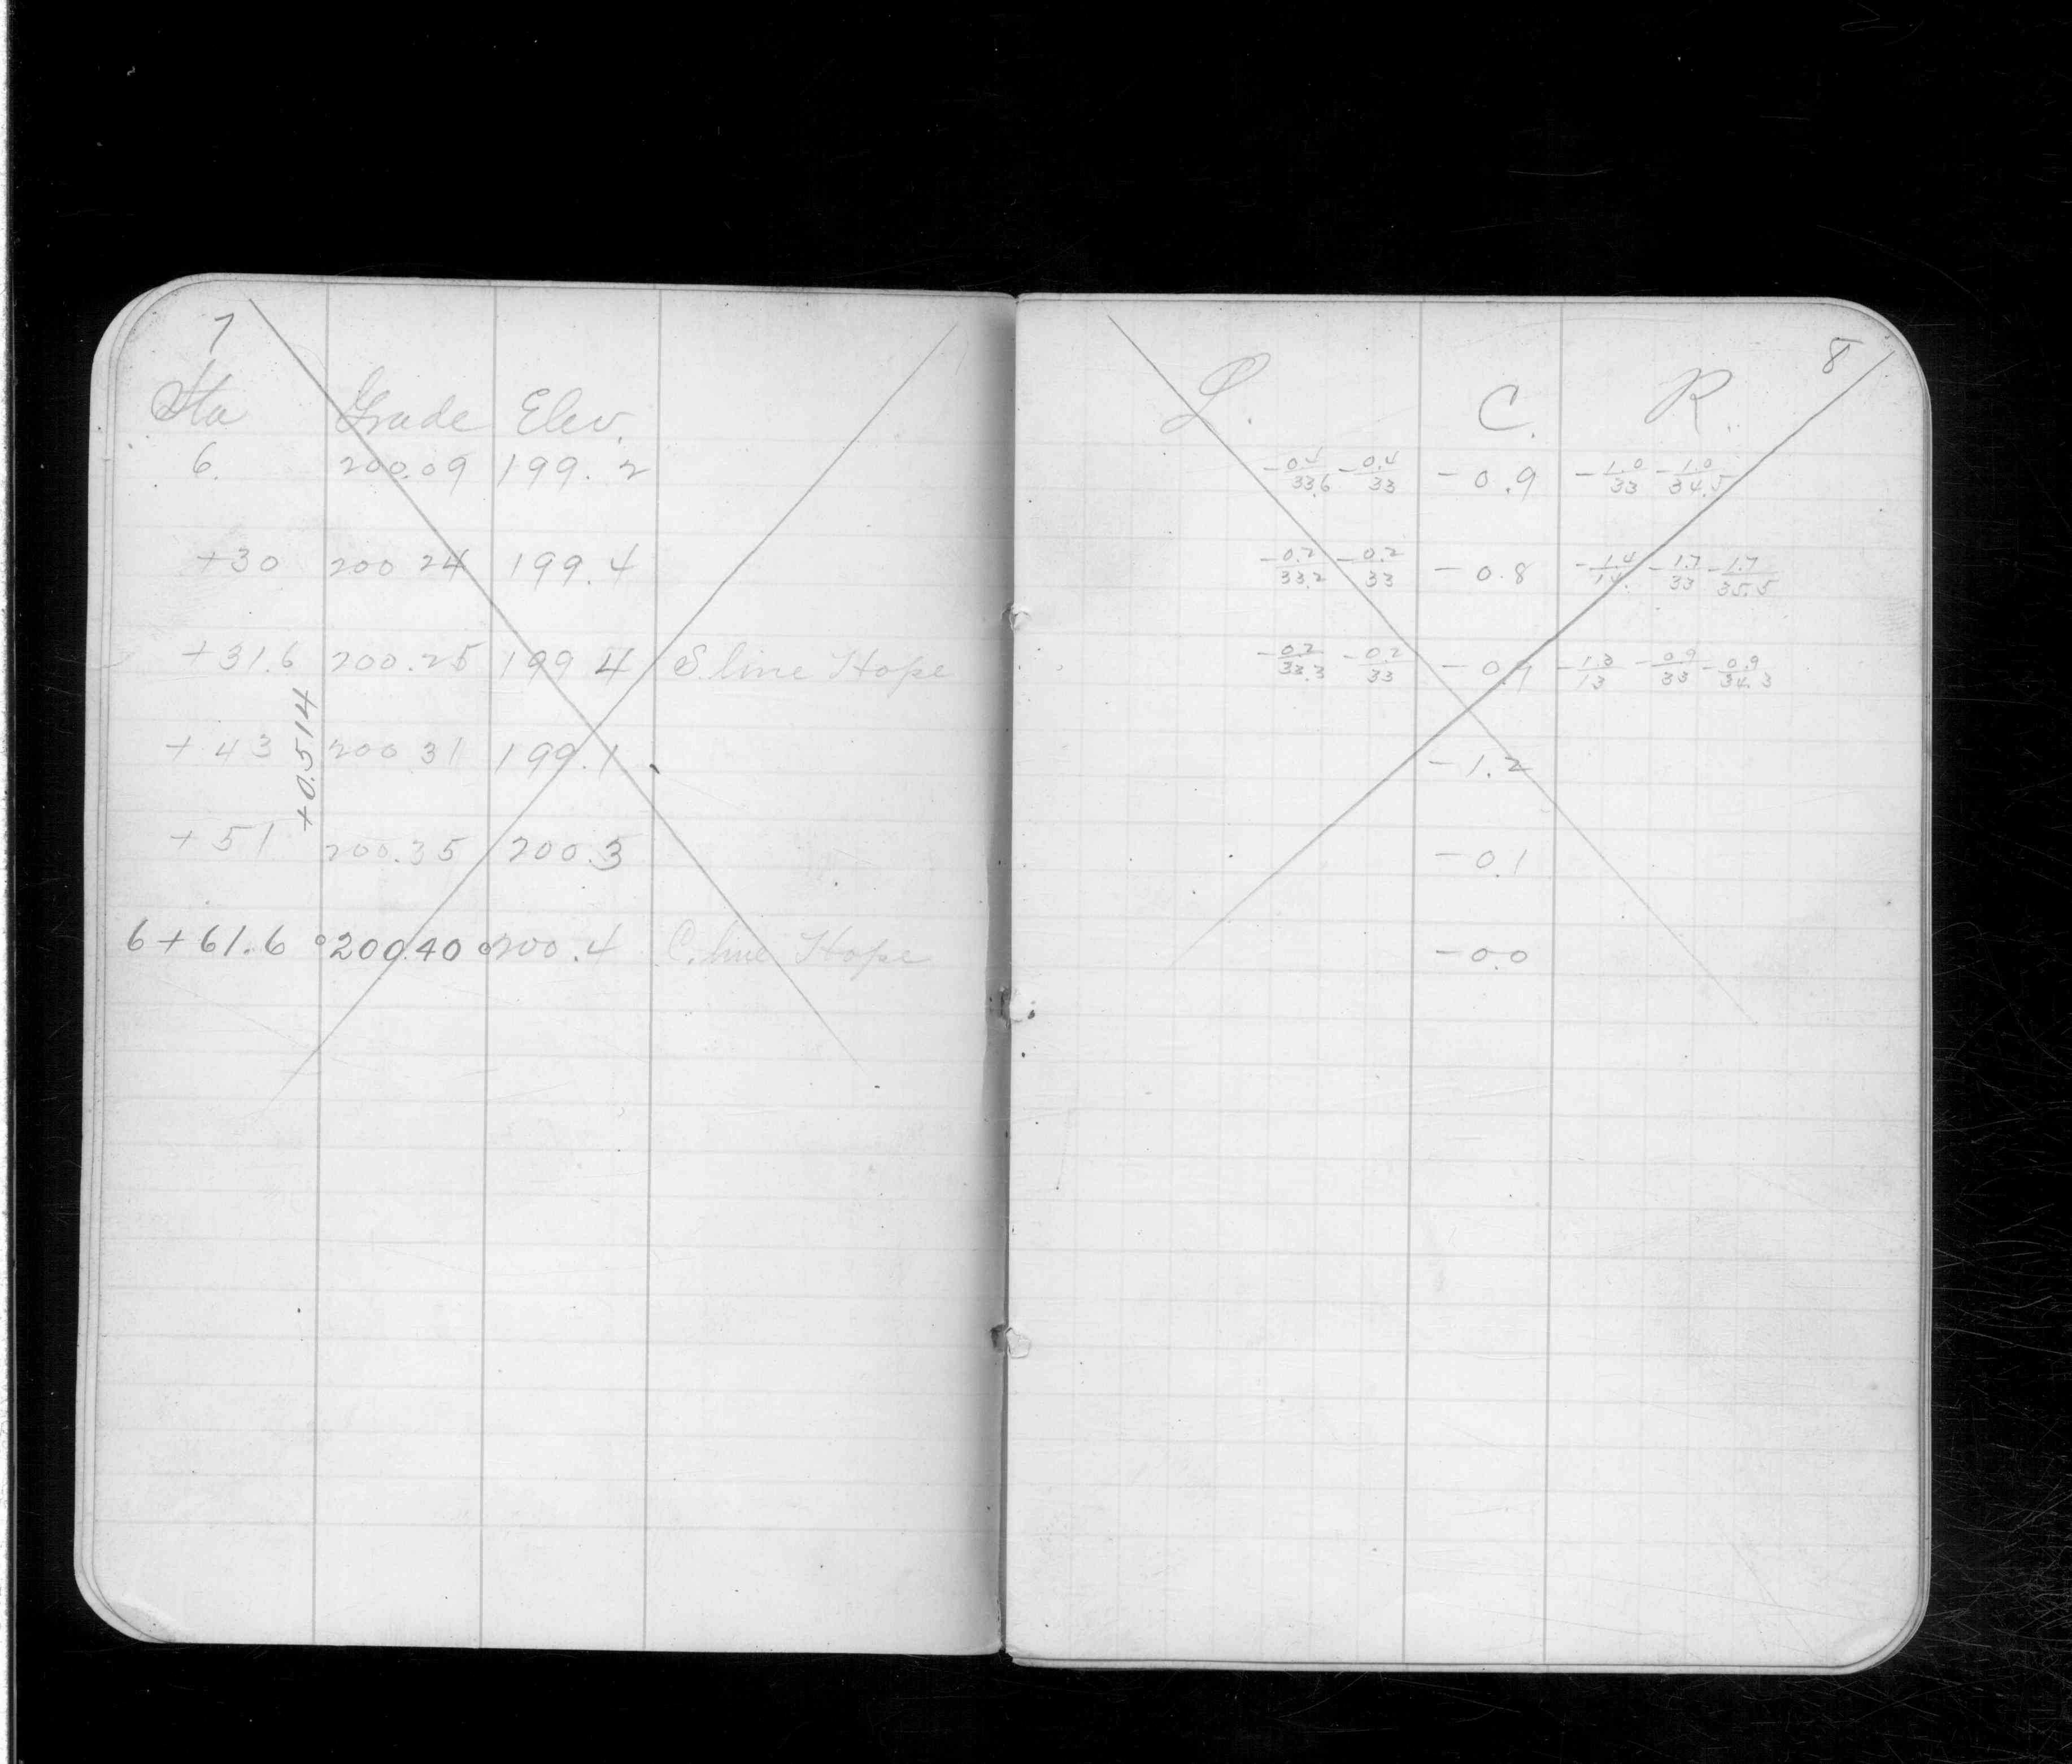 7
Sta Grade Elev.
6. 200.09 199.2
+30 200 24 199.4
+31.6 200.25 199 4 S. line Hope
+0.514
+43 200 31 199.1
+51 200.35 200.3
6+61.6 200.40 200.4 C. line Hope
8
L. C. R.
-0.4/33.6 -0.4/33 -0.9 -1.0/33 -1.0/34.5
-0.2/33.2 -0.2/33 -0.8 -1.4/14. -1.7/33 -1.7/35.5
-0.2/33.3 -0.2/33 -1.3/13 -0.9/33 -0.9/34.3
-1.2
-0.1
-0.0